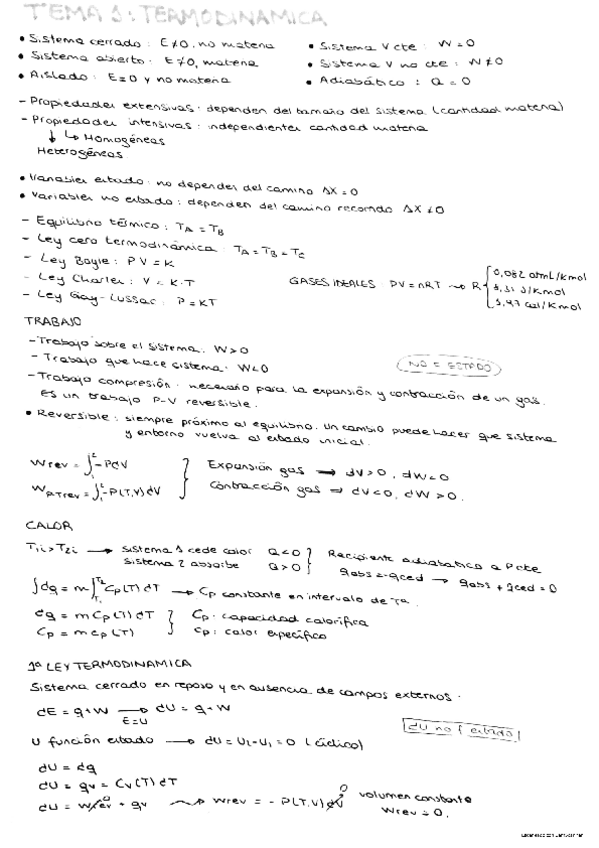 TEMA 1: TERMODINAMICA
• Sistema cerrado: E≠0, no materia
• Sistema V cte: W=0
• Sistema abierto: E≠0, materia
• Sistema V no cte: W≠0
• Aislado: E=0 y no materia
• Adiabático: Q=0
- Propiedades extensivas: dependen del tamaño del sistema (cantidad materia)
- Propiedades intensivas: independientes cantidad materia
↓ ↳ Homogéneas
Heterogéneas
• Variables estado: no depender del camino ΔX=0
• Variables no estado: dependen del camino recorrido ΔX≠0
- Equilibrio térmico: TA = TB
- Ley cero termodinámica: TA = TB = TC
- Ley Boyle: PV=K
- Ley Charles: V=K·T
- Ley Gay-Lussac: P=KT
GASES IDEALES PV=nRT → R
0,082 atmL/Kmol
8,31 J/Kmol
TRABAJO
- Trabajo sobre el sistema: W>0
- Trabajo que hace sistema: W<0
NO = ESTADO
- Trabajo compresión: necesario para la expansión y contracción de un gas.
Es un trabajo P-V reversible.
• Reversible: siempre próximo al equilibrio. Un cambio puede hacer que sistema
y entorno vuelva al estado inicial.
Wrev = ∫₁² -PdV
Expansión gas → dV>0, dW<0
WPTrev = ∫₁² -P(T,V)dV
Contracción gas → dV<0, dW>0.
CALOR
T1i>T2i → sistema 1 cede calor Q<0
sistema 2 absorbe Q>0
Recipiente adiabatico a Pcte
qabs=-qced → qabs + qced = 0
∫dq = m∫ Cp(T)dT → Cp constante en intervalo de Tª.
dq = mCp(T)dT
Cp: capacidad calorífica
Cp = mcp(T)
cp: calor específico
1ª LEY TERMODINAMICA
Sistema cerrado en reposo y en ausencia de campos externos.
dE = q+W → dU = q+W
E=U
dU no f estado
U función estado → dU=U2-U1=0 (cíclico)
dU = dq
dU = qv = Cv(T)dT
dU = Wrev + qv → Wrev = -P(T,V)dV
0
0
volumen constante
Wrev=0.